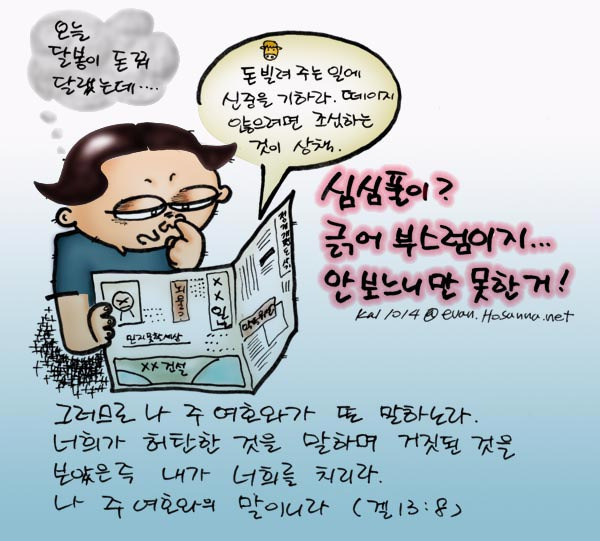 오늘
달봉이 돈 꿔
달랬는데....
돈 빌려 주는 일에
신중을 기하라. 떼이지
않으려면 조심하는
것이 상책.
심심풀이?
긁어 부스럼이지...
안 보느니만 못한 거!
Kal 1014 @ evan.Hosanna.net
XX일보
믿지못할세상
XX 건설
그러므로 나 주 여호와가 또 말하노라.
너희가 허탄한 것을 말하며 거짓된 것을
보았은즉 내가 너희를 치리라.
나 주 여호와의 말이니라 (겔 13:8)